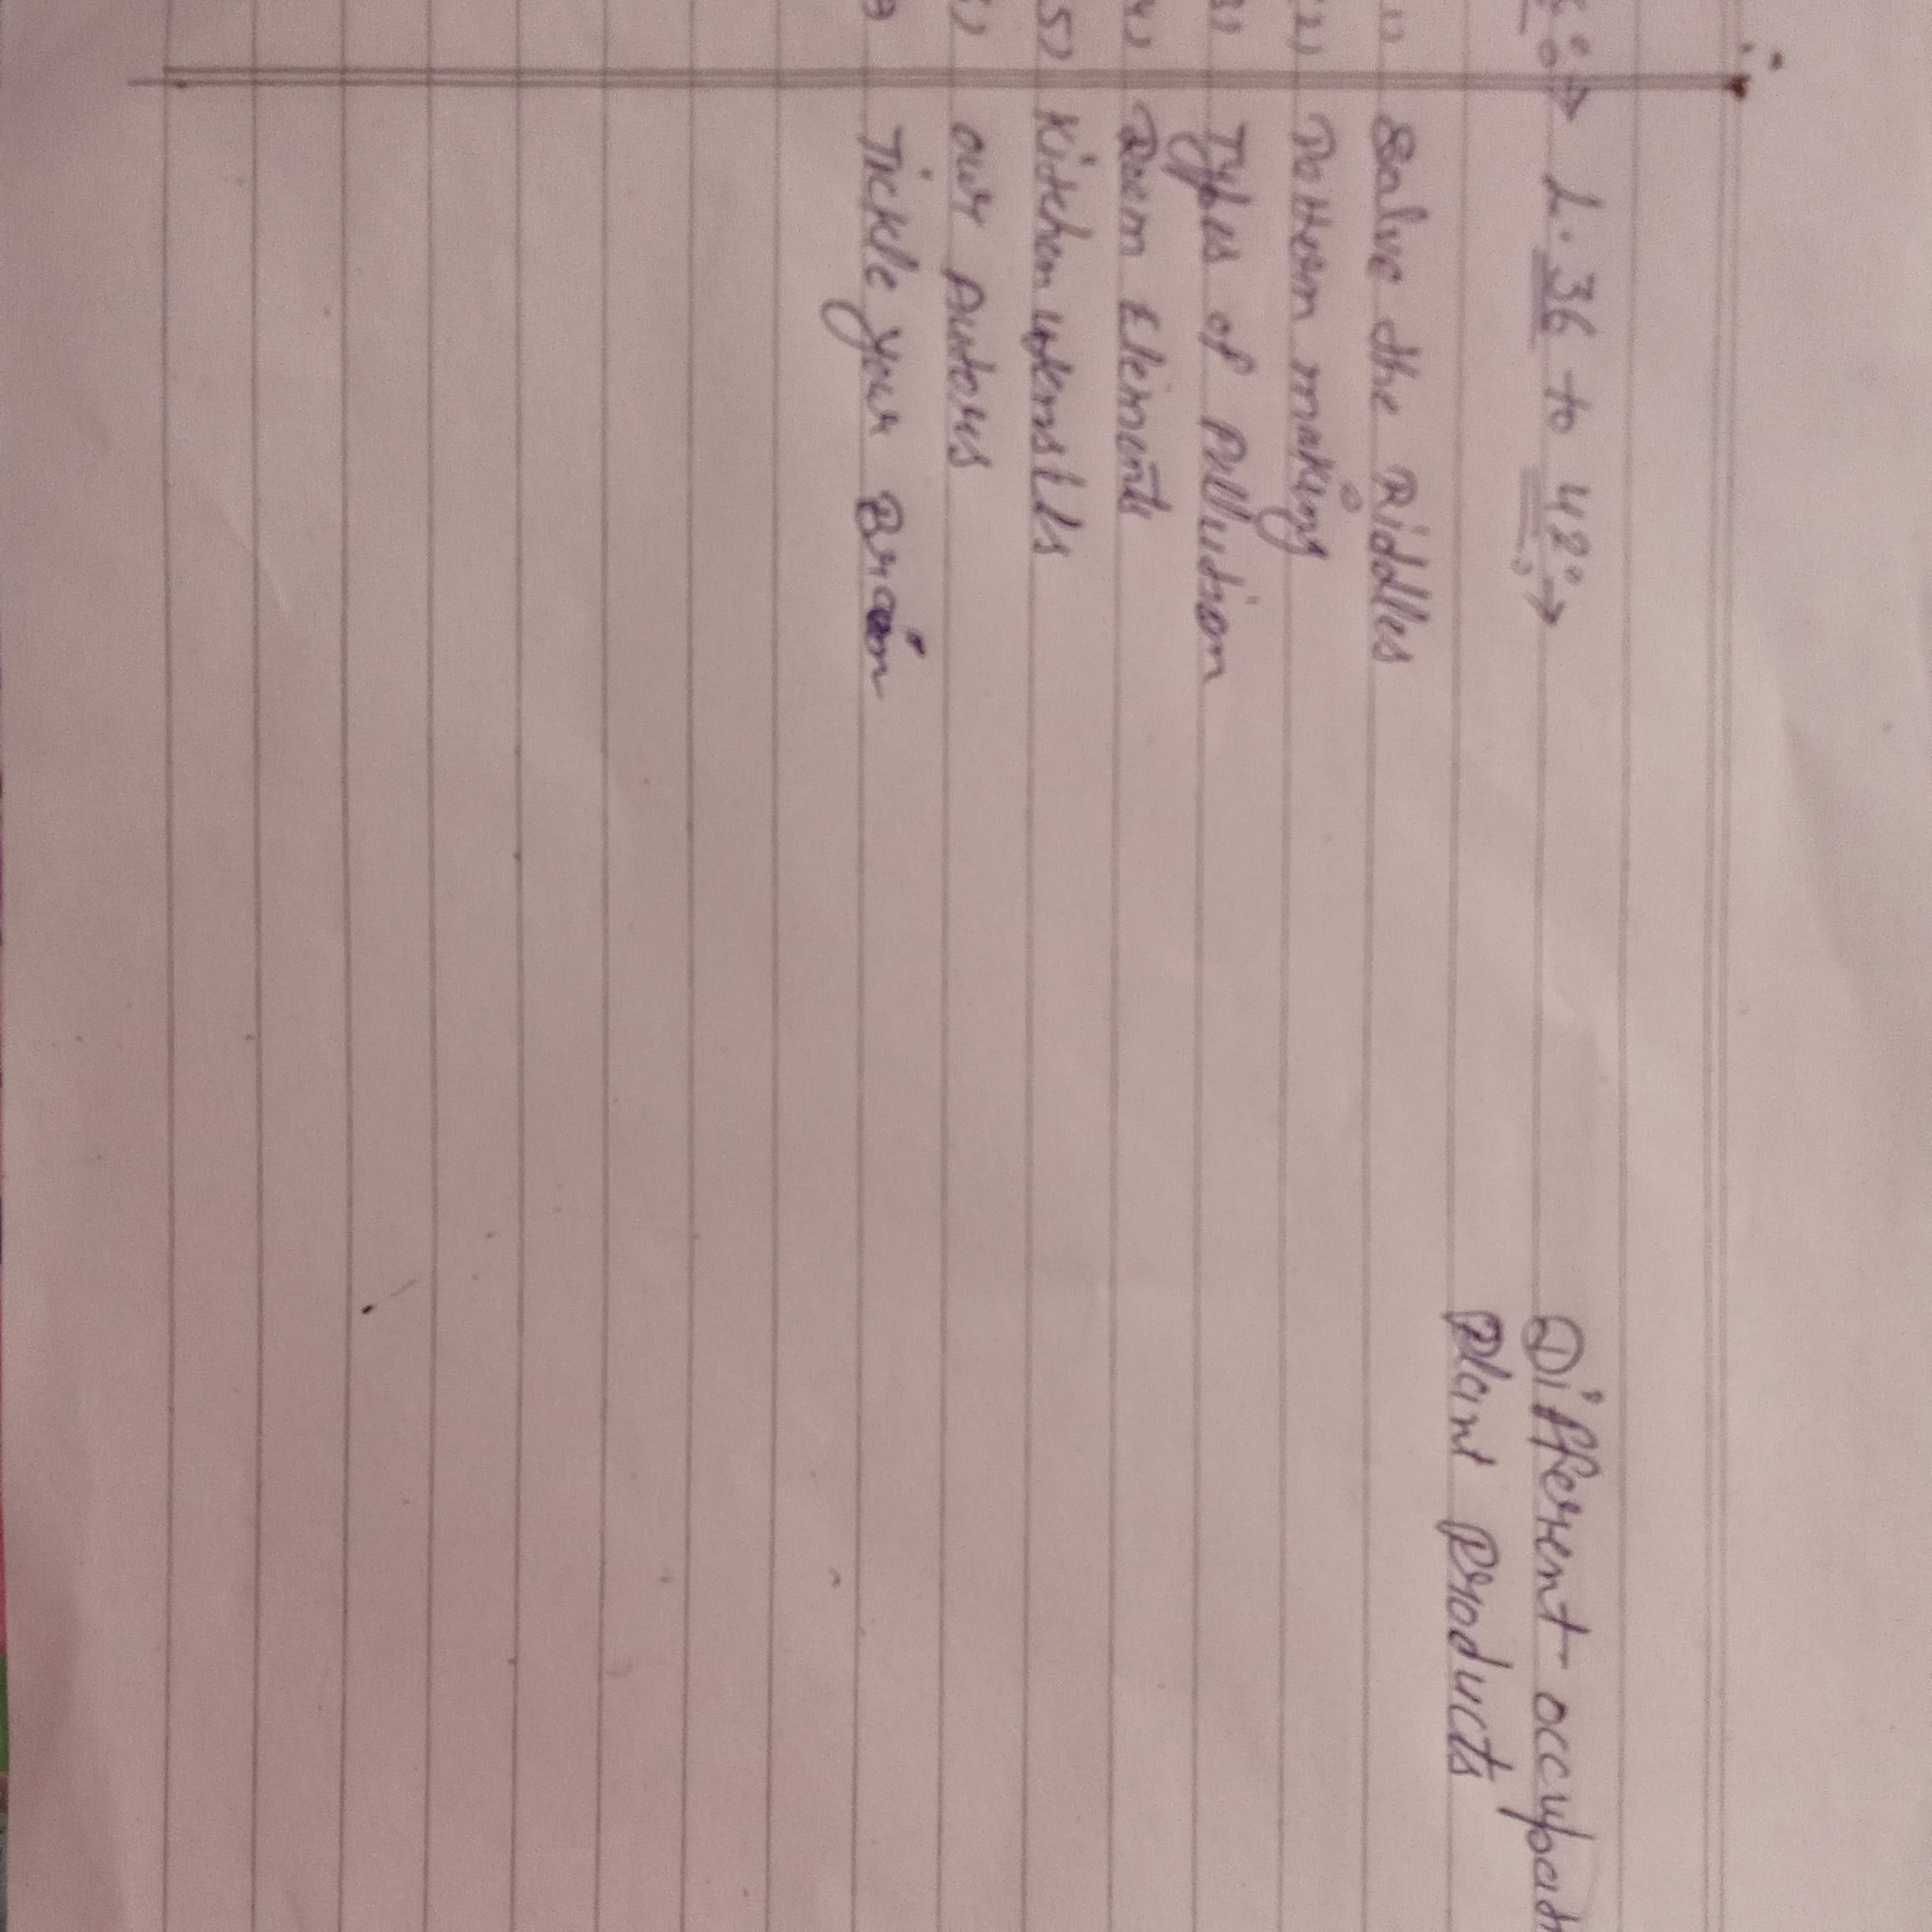 L. 36 to 42 :→
1) Solve the Riddles
2) Pattern making
3) Types of Pollution
4) Poem Elements
5) Kitchen utensils
our Autous
Tickle your Brain
Different occupati
plant products